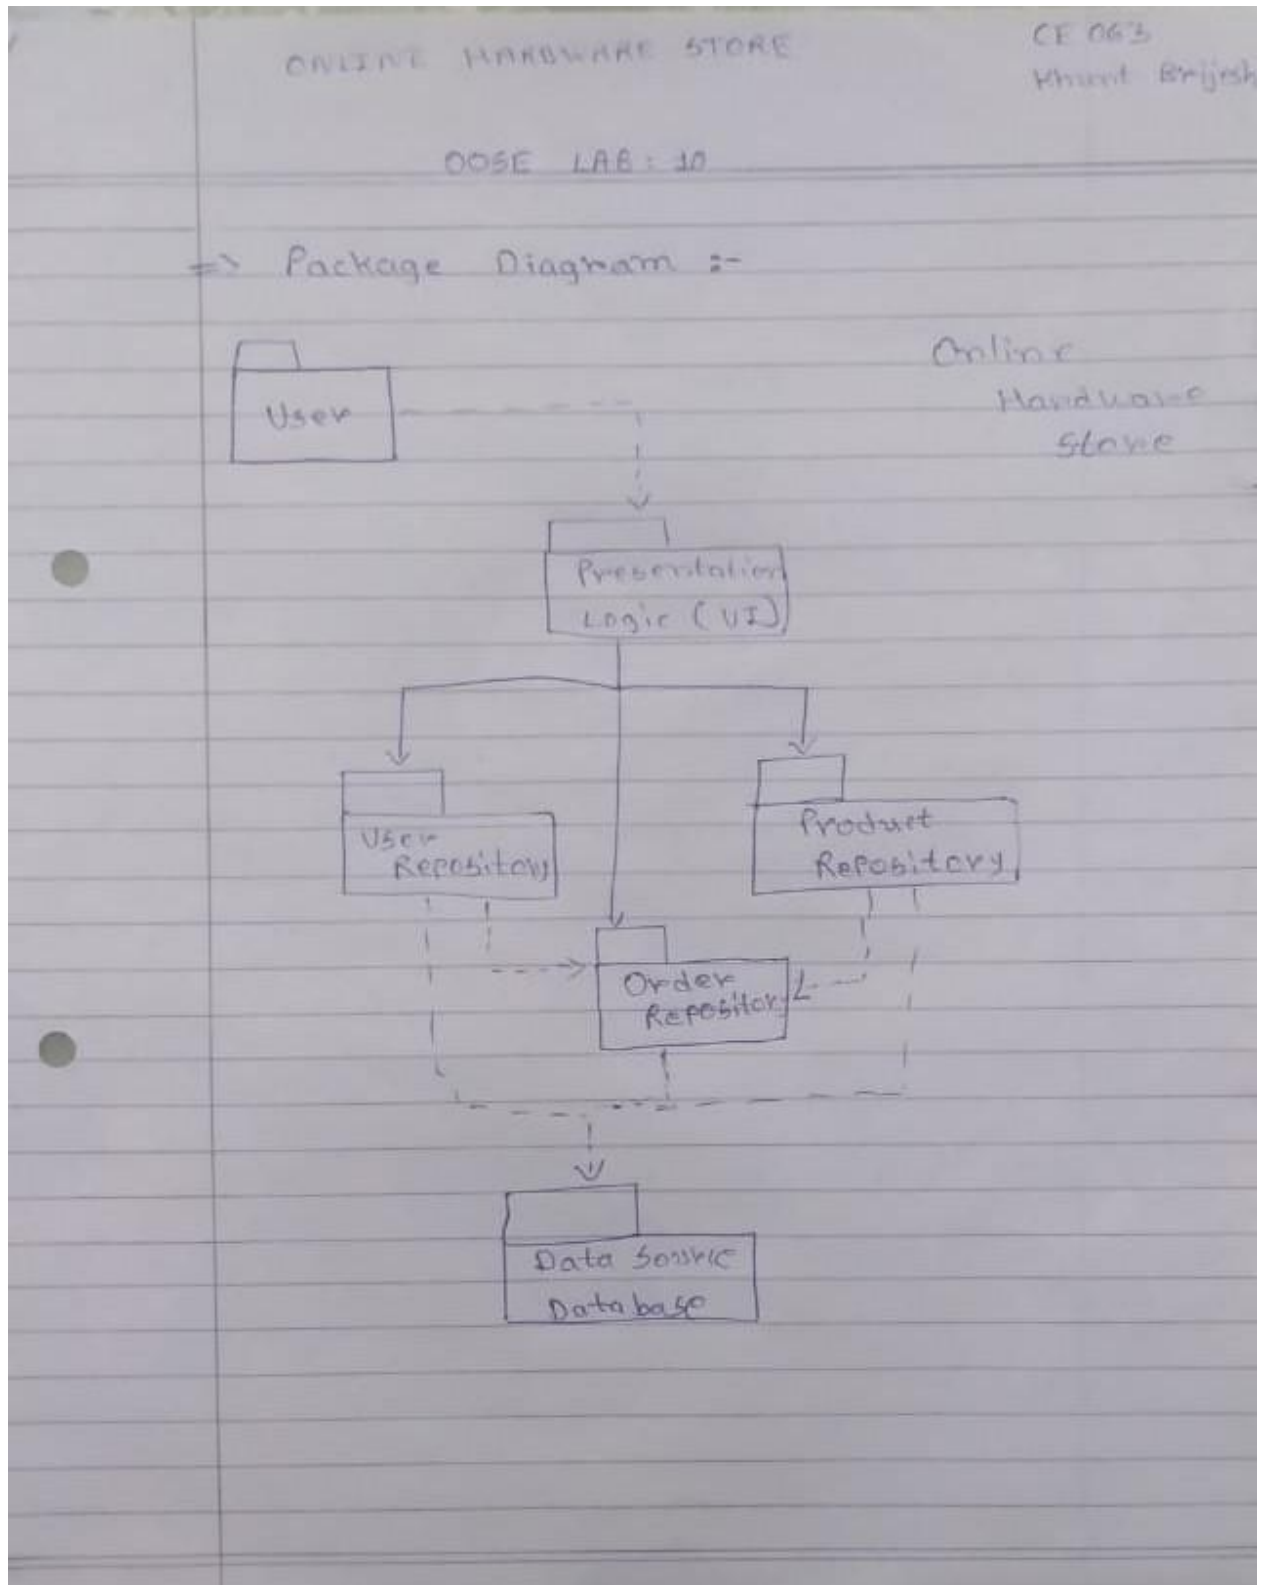 ONLINE HARDWARE STORE
CE 063
Khunt Brijesh
OOSE LAB : 10
=> Package Diagram :-
Online
Hardware
Store
User
Presentation
Logic (UI)
User
Repository
Product
Repository
Order
Repository
Data Source
Database